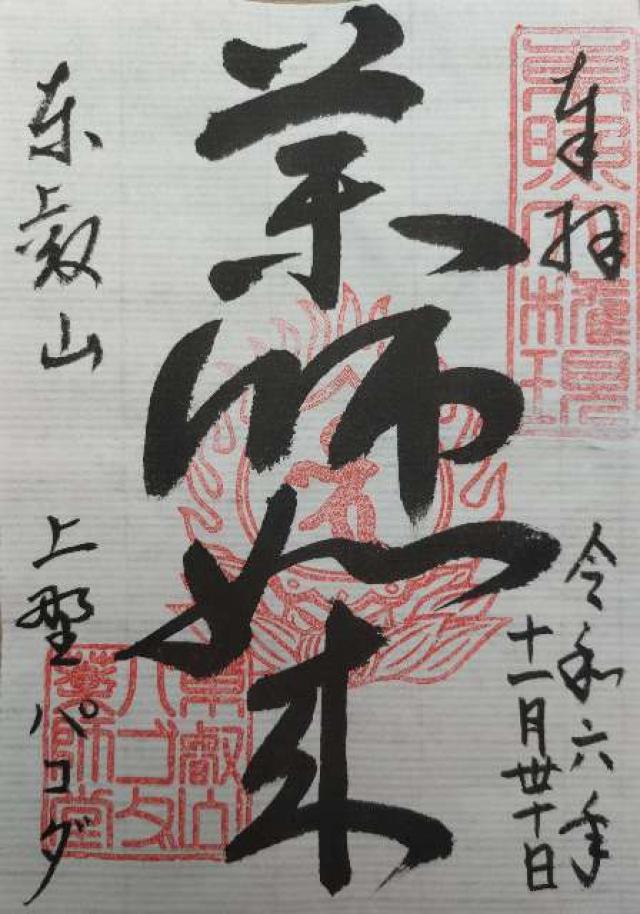 奉拝
東照大権現
令和六年
十一月丗十日
薬師如来
東叡山
上野パコダ
東叡山
パゴダ
薬師堂